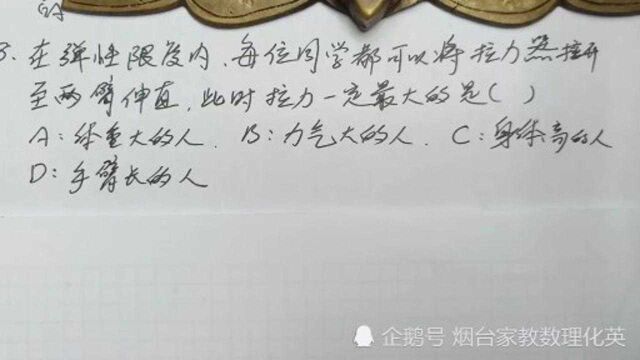 3. 在弹性限度内、每位同学都可以将拉力器拉开
至两臂伸直,此时拉力一定最大的是( )
A:体重大的人. B:力气大的人. C:身体高的人
D:手臂长的人
企鹅号 烟台家教数理化英